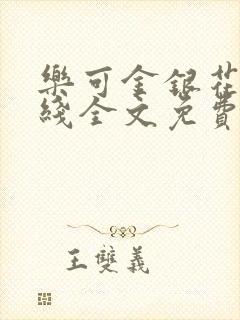 樂可金銀花
綫全文免費
王雙義